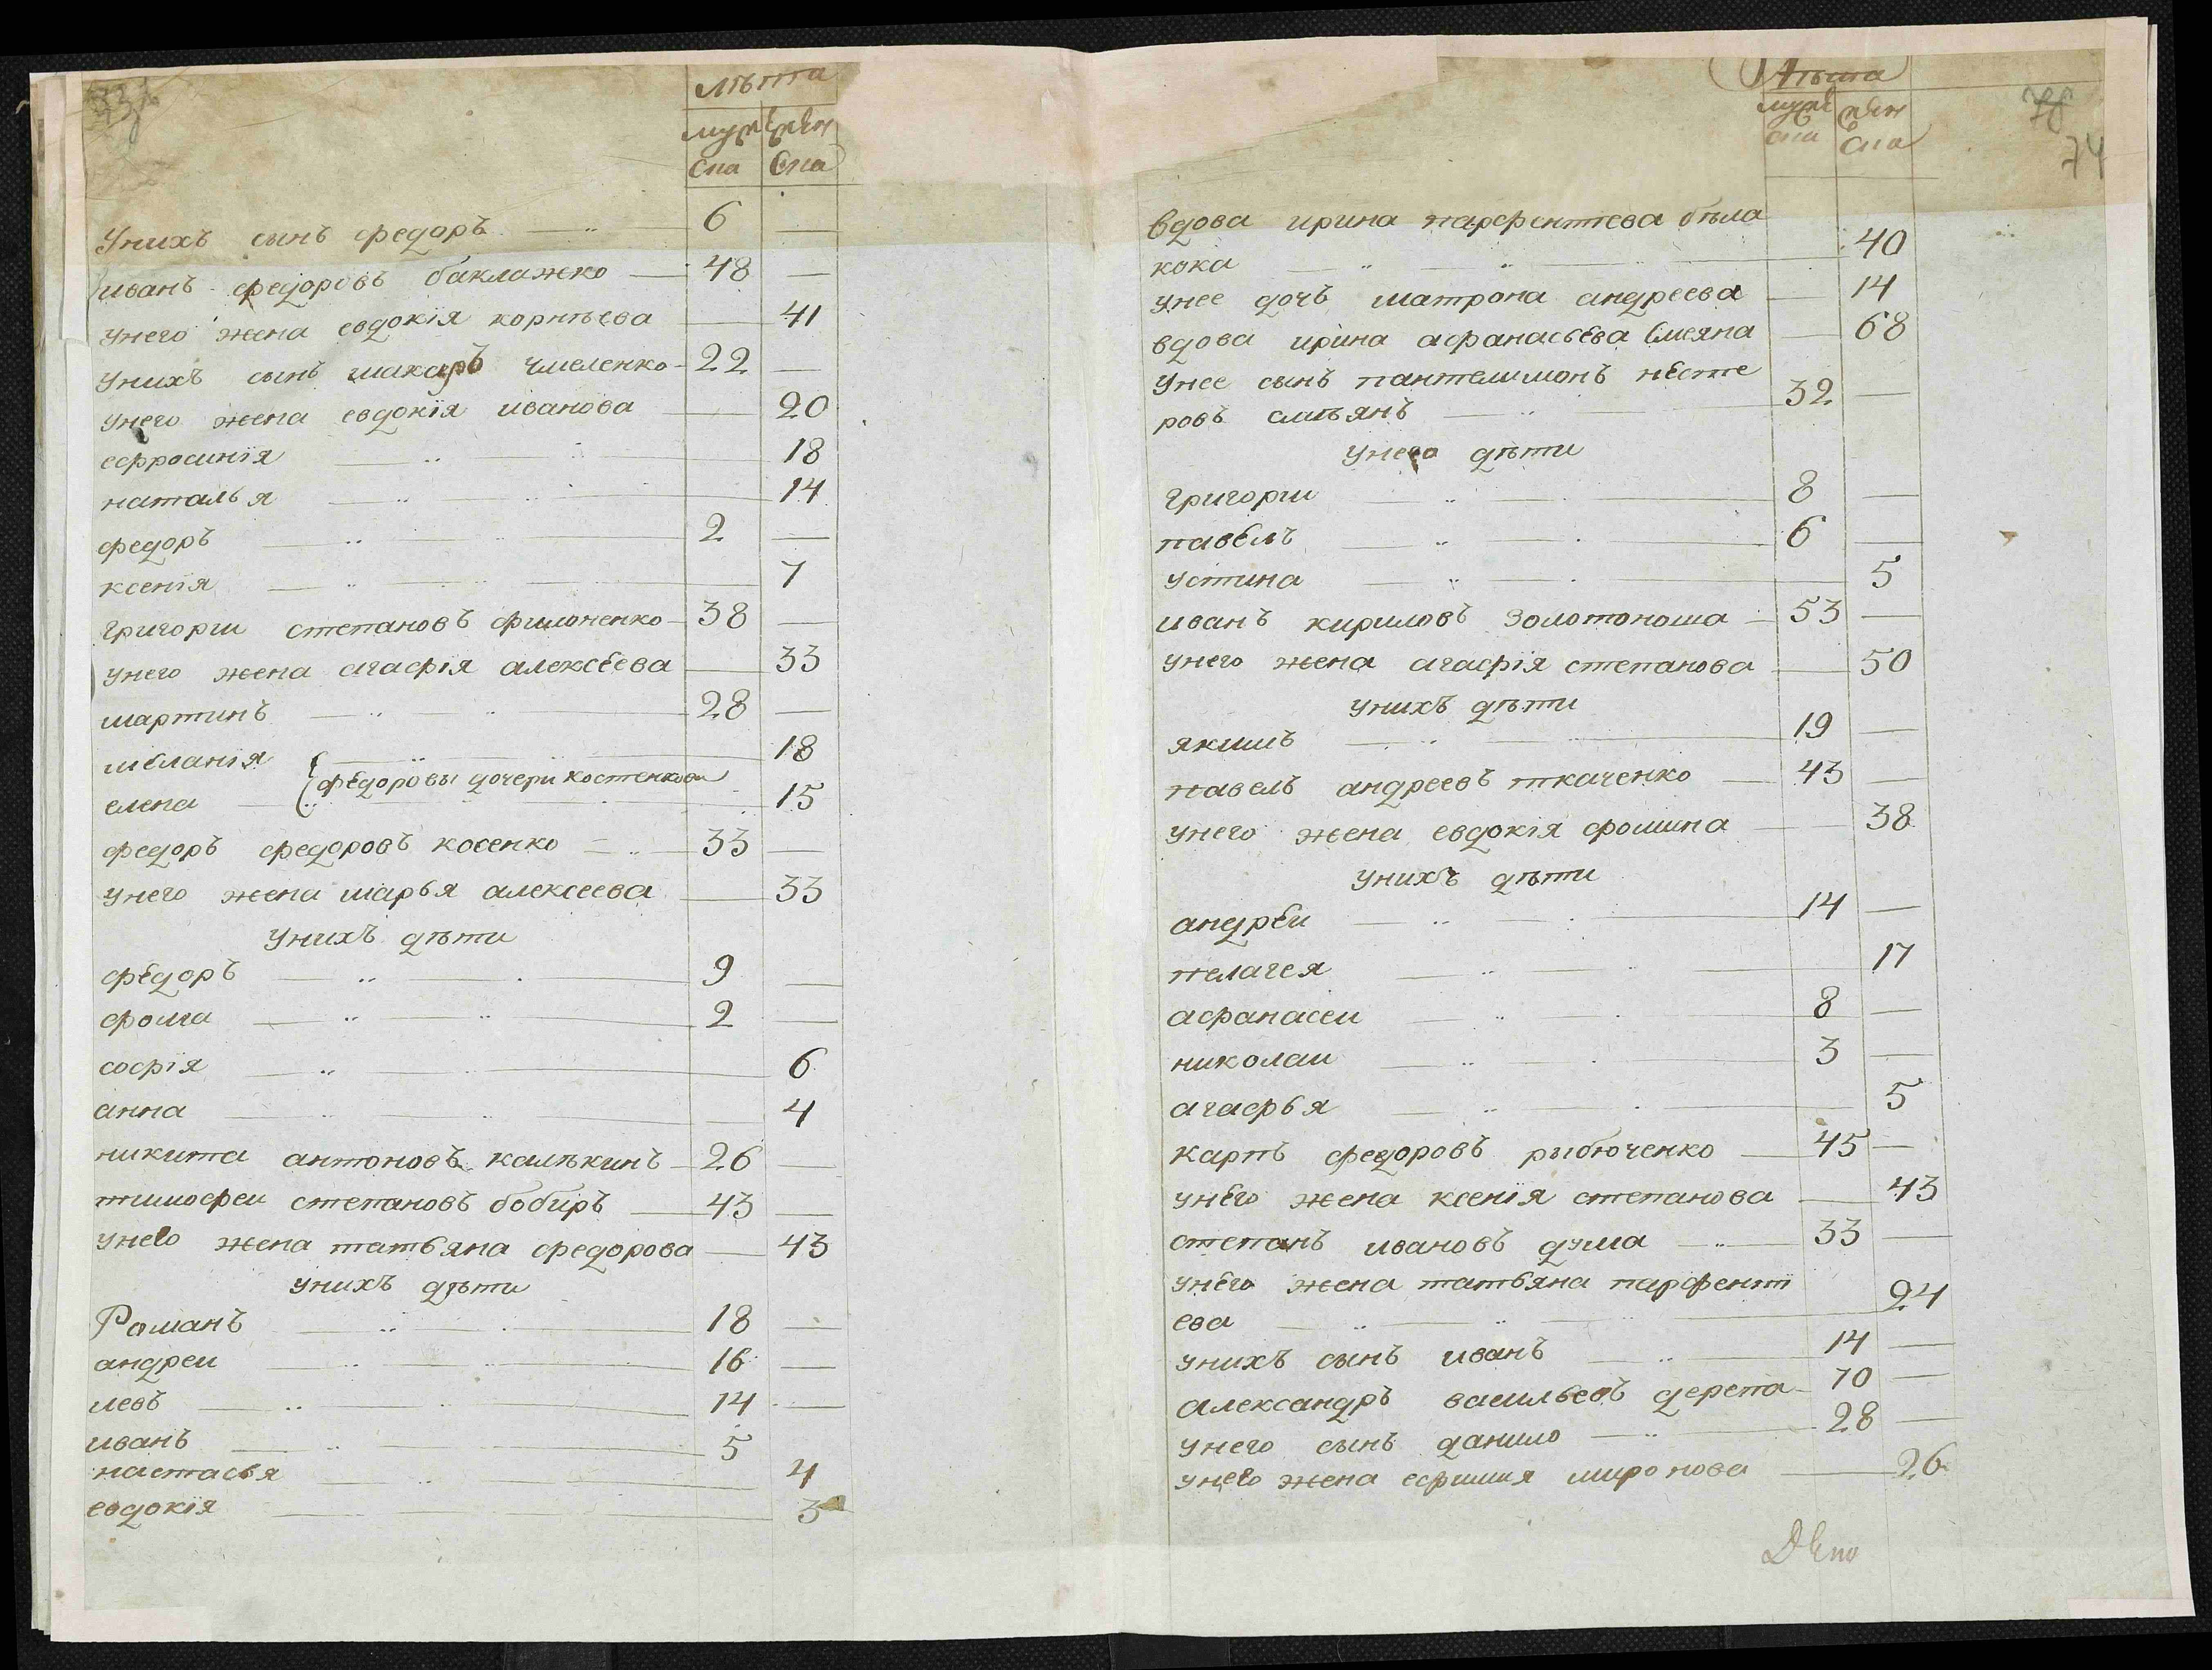 лѣта
муже женс
ска ска
Унихъ сынъ федоръ 6 —
иванъ федоровъ баклажко 48 —
унего жена евдокія корнѣева — 41
Унихъ сынъ макаръ чмеленко 22 —
унего жена евдокія иванова — 20
ефросинія 18
наталья 14
федоръ 2 —
ксенія 7
григории степановъ филоненко 38 —
унего жена агафія алексеева — 33
мартинъ 28 —
меланія 18
федоровы дочери костенкови
елена 15
федоръ федоровъ косенко 33 —
унего жена марья алексеева — 33
унихъ дѣти
федоръ 9 —
фома 2 —
софія 6
анна 4
никита антоновъ калѣкинъ 26 —
тимофеи степановъ бобиръ 43 —
унего жена татьяна федорова — 43
унихъ дѣти
Романъ 18 —
андреи 16 —
левъ 14 —
иванъ 5
настасья 4
евдокія 3
Лѣта
муже женс
ска ска
78
74
вдова ирина парфентьева бѣла
кока 40
унее дочъ матрона андреева — 14
вдова ирина афанасьева Смеяна — 68
Унее сынъ пантелимонъ несте
ровъ смѣянъ 32 —
унего дѣти
григории 8 —
павелъ 6 —
устина 5
иванъ кириловъ Золотоноша 53 —
унего жена агафія степанова — 50
унихъ дѣти
якимъ 19 —
павелъ андреевъ ткаченко 43 —
унего жена евдокія фомина — 38
унихъ дѣти
андреи 14 —
пелагея 17
афанасеи 8 —
николаи 3 —
агафья 5
карпъ федоровъ рибюченко 45 —
унего жена ксенія степанова — 43
степанъ ивановъ дума 33 —
унего жена татьяна парфенті
ева 24
унихъ сынъ иванъ 14 —
александръ васильевъ дерета 70 —
унего сынъ данило 28 —
унего жена ефимия миронова — 26